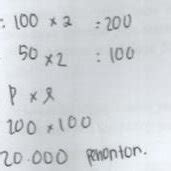 : 100 x 2 : = 200
50 x 2 : 100
P x l
200 x 100
20.000 penonton.